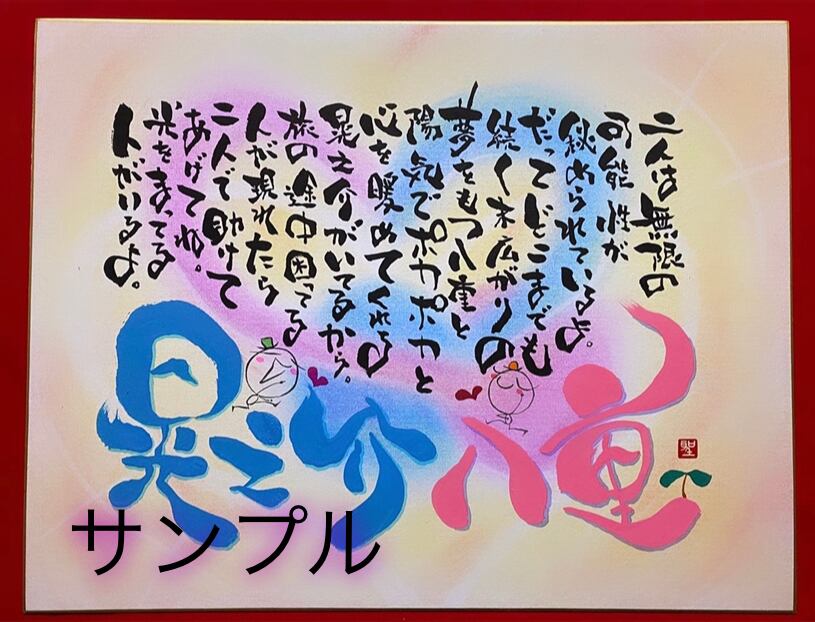 二人は無限の
可能性が
秘められているよ。
だってどこまでも
続く末広がりの
夢をもつ八重と
陽気でポカポカと
心を暖めてくれる
晃之介がいてるから。
旅の途中困ってる
人が現れたら
二人で助けて
あげてね。
光をまってる
人がいるよ。
晃之介
八重
聖
サンプル